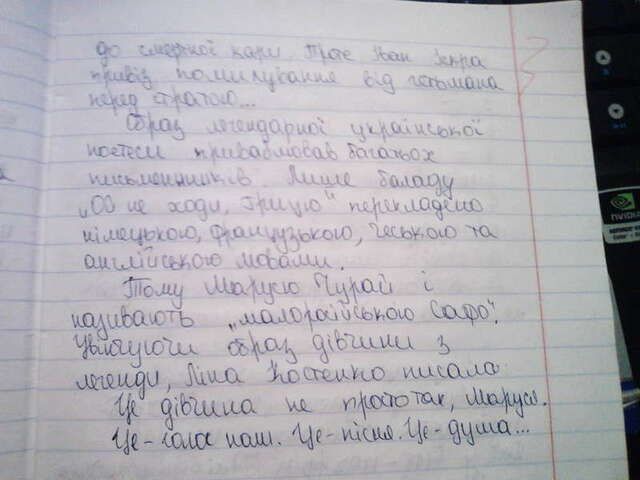 до смертної кари. Проте Іван Іскра
привіз помилування від гетьмана
перед стратою...
Образ легендарної української
поетеси приваблював багатьох
письменників. Лише баладу
„Ой не ходи, Грицю" перекладено
німецькою, французькою, чеською та
англійською мовами.
Тому Марусю Чурай і
називають „малоросійською Сафо".
Увінчуючи образ дівчини з
легенди, Ліна Костенко писала:
Це дівчина не просто так, Маруся.
Це - голос наш. Це - пісня. Це - душа...
nVIDIA